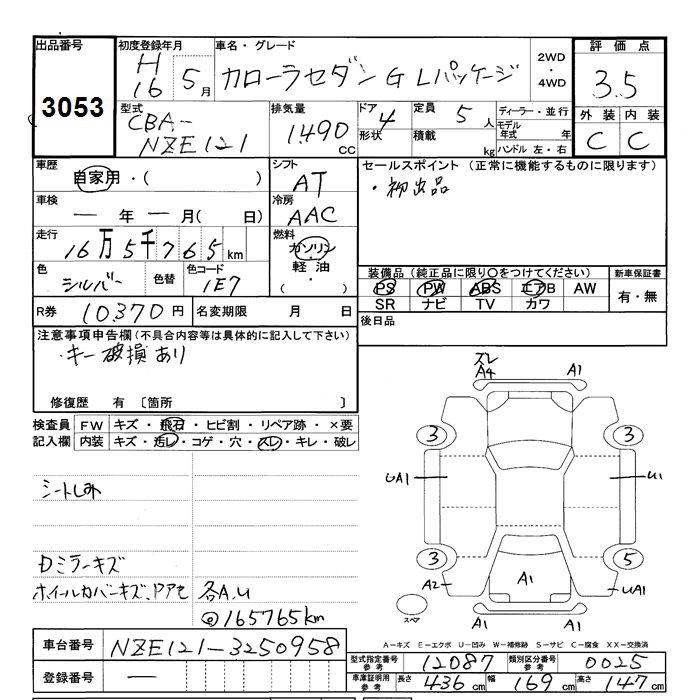 出品番号
3053
初度登録年月
H
16 5月
車名・グレード
カローラセダン G Lパッケージ
2WD
・
4WD
評価点
3.5
外装 内装
C C
型式
CBA-
NZE121
排気量
1490 CC
ドア 4
形状
定員 5人
積載 kg
ディーラー・並行
モデル
年式 年
ハンドル 左・右
車歴
自家用・( )
シフト
AT
セールスポイント(正常に機能するものに限ります)
・初出品
車検
— 年 — 月( 日)
冷房
AAC
走行
16万5千765km
燃料
ガソリン
・
軽油
・
( )
色
シルバー
色替
色コード
1E7
装備品(純正品に限り○をつけてください)
新車保証書
PS PW ABS エアB AW
SR ナビ TV カワ
有・無
R券 10370円
名変期限 月 日
後日品
注意事項申告欄(不具合内容等は具体的に記入して下さい)
・キー破損あり
修復歴 有 〔箇所 〕
検査員
記入欄
FW キズ・飛石・ヒビ割・リペア跡・×要
内装 キズ・汚レ・コゲ・穴・スレ・キレ・破レ
シートしみ
Dミラーキズ
ホイールカバーキズ、ドアモ 各A.U
@165765km
ズレ
A4 A1
3 3
UA1 U1
3 5
A2 A1 UA1
A1 A1
スペア
A-キズ E-エクボ U-凹み W-補修跡 S-サビ C-腐食 XX-交換済
車台番号 NZE121-3250958
登録番号 —
型式指定番号
参考
12087
類別区分番号
参考
0025
車庫証明用
参考
長さ 436cm 幅 169cm 高さ 147cm